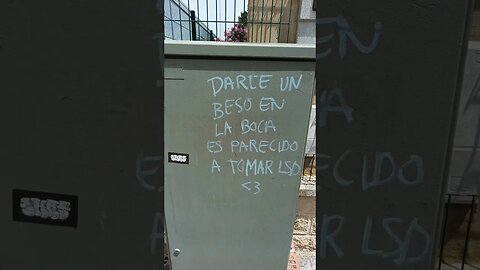 DARTE UN
BESO EN
LA BOCA
ES PARECIDO
A TOMAR LSD
<3